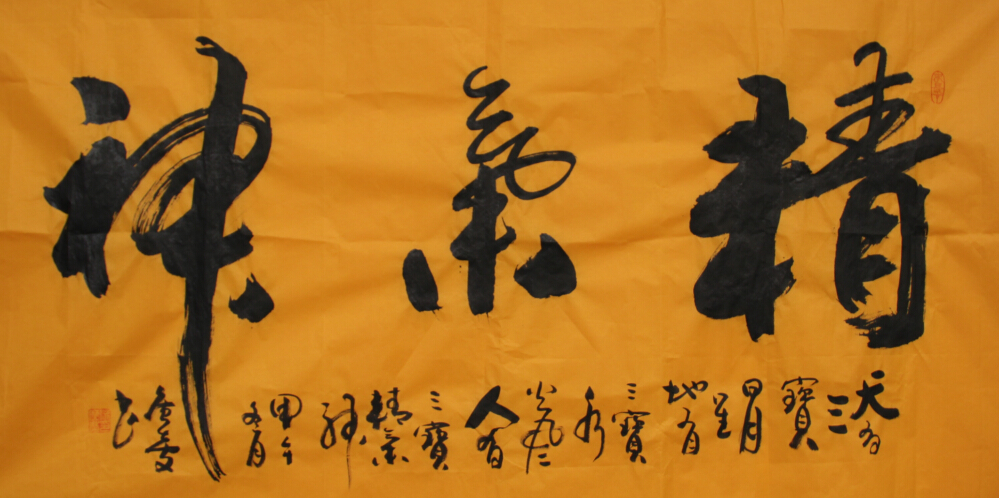 精氣神
天有
三
寶
日月
星
地有
三寶
水
火風
人有
三寶
精氣
神
甲午
冬月